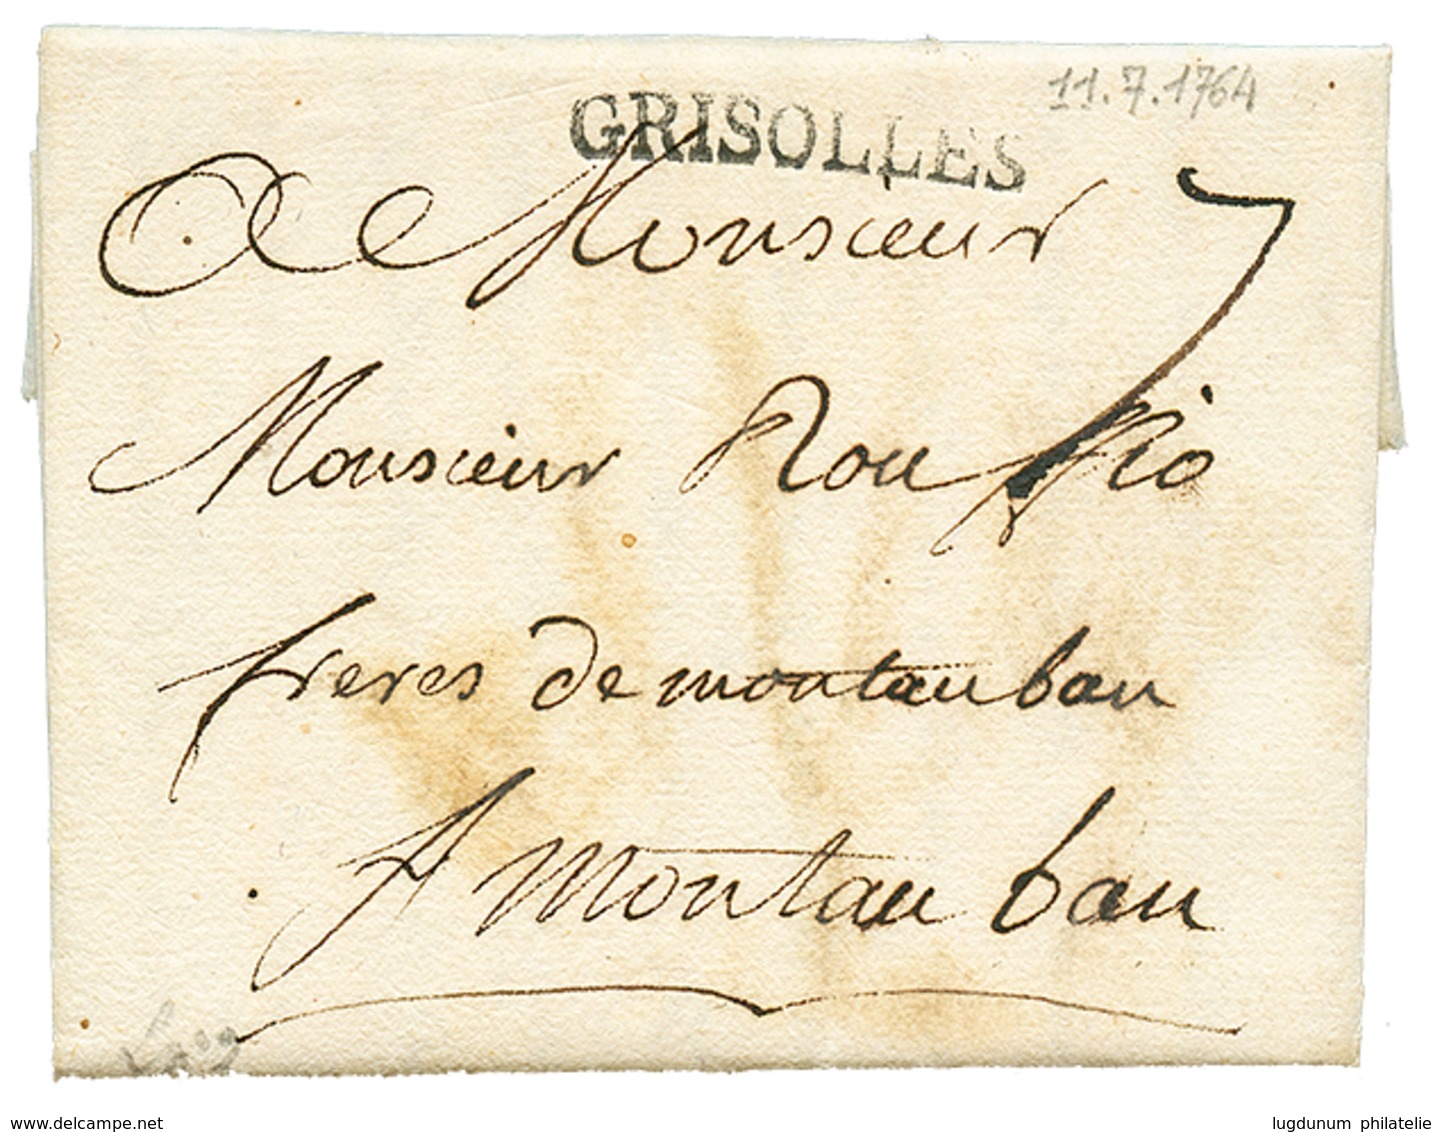 GRISOLLES
11.7.1764
A Monsieur
7
Monsieur Rouffio
freres de montauban
A montauban
www.delcampe.net
lugdunum philatelie